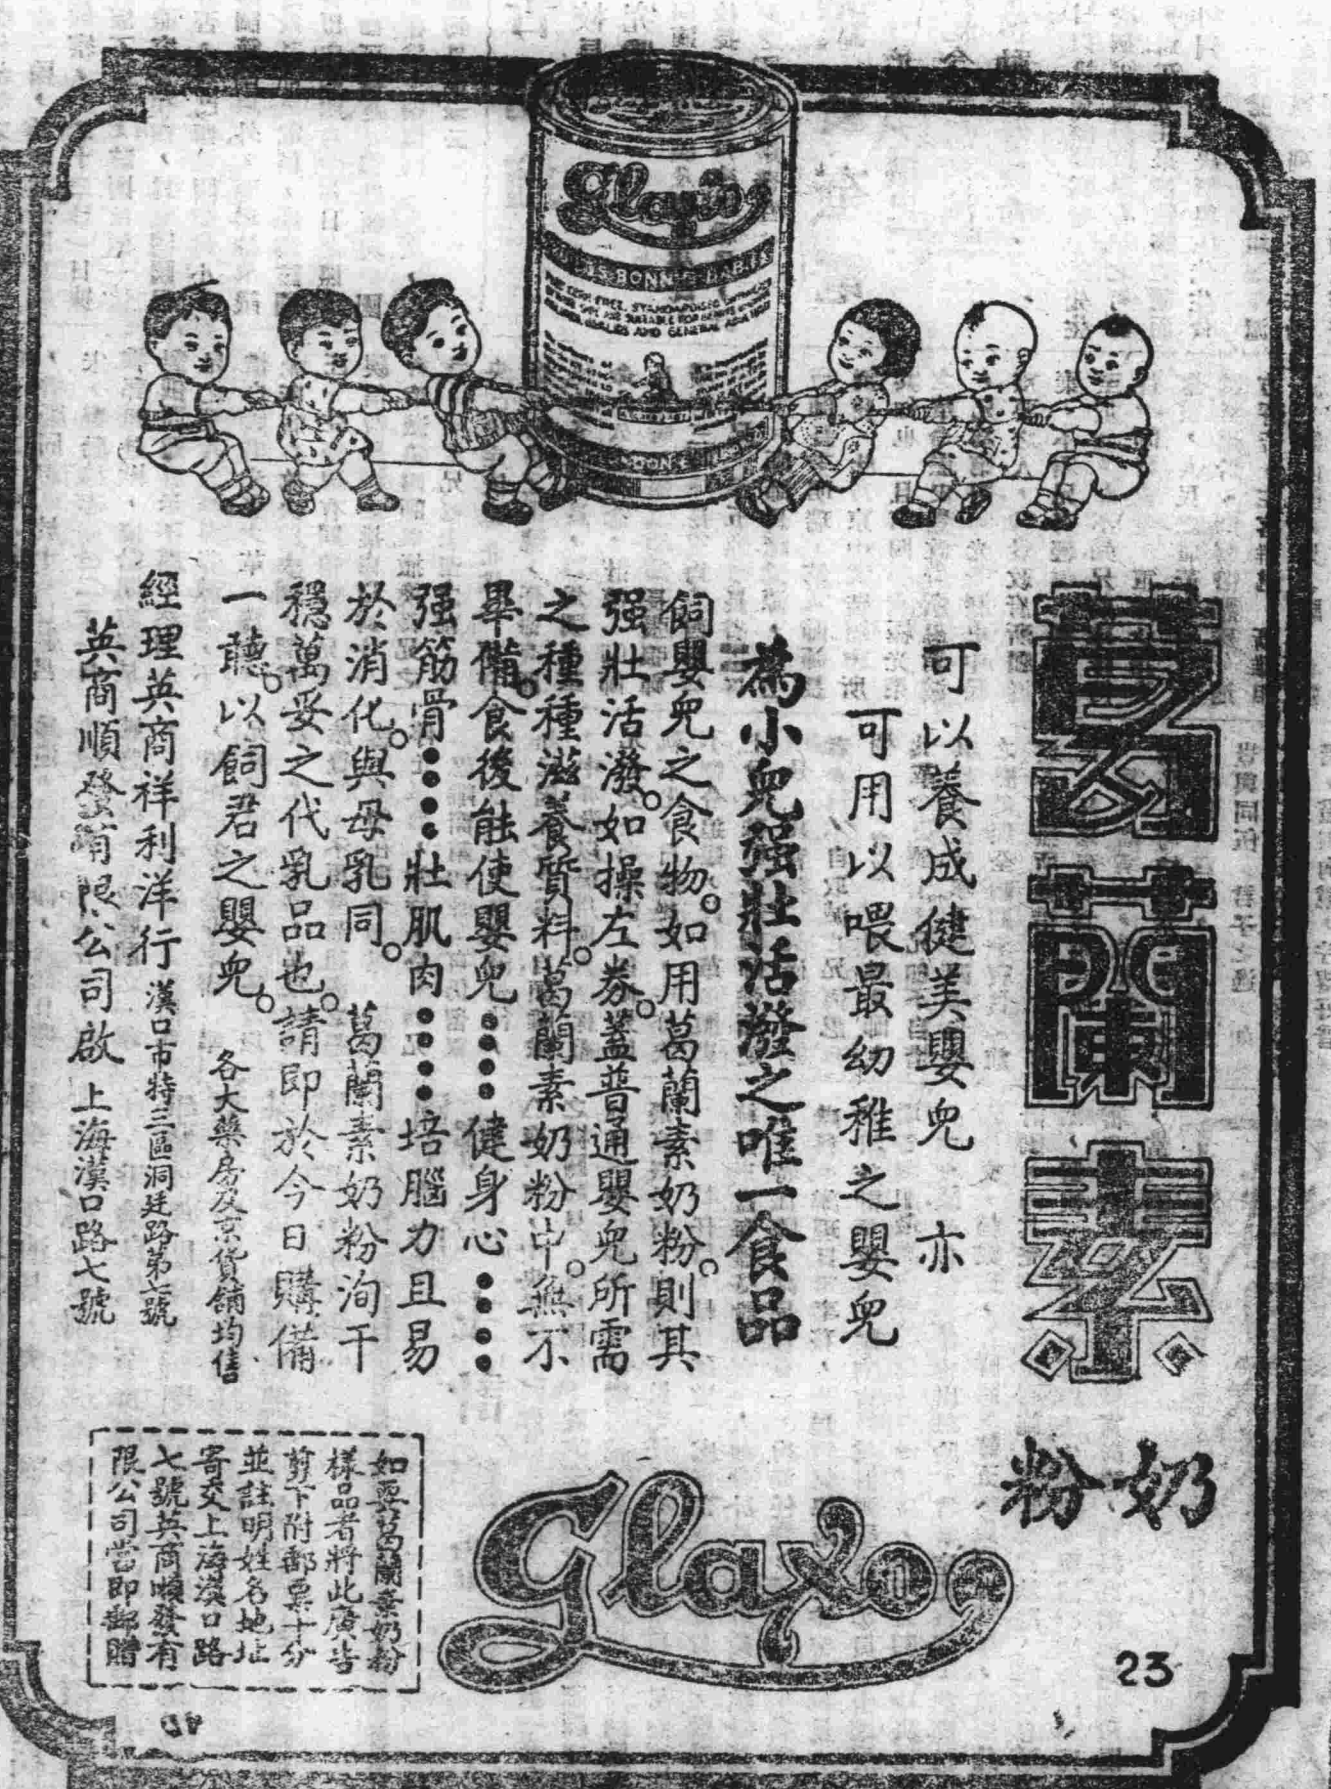 Glaxo
BONNIE BABIES
葛蘭素
奶粉
可以養成健美嬰兒　亦
可用以喂最幼稚之嬰兒
為小兒强壯活潑之唯一食品
飼嬰兒之食物。如用葛蘭素奶粉。則其
强壯活潑。如操左券。蓋普通嬰兒所需
之種種滋養質料。葛蘭素奶粉中。無不
畢備。食後能使嬰兒••••健身心••••
强筋骨••••壯肌肉••••培腦力且易
於消化。與母乳同。　葛蘭素奶粉洵千
穩萬妥之代乳品也。請即於今日購備
一聽。以飼君之嬰兒。　各大藥房及京貨舖均售
經理英商祥利洋行　漢口市特三區洞廷路第七號
英商順發有限公司啟　上海漢口路七號
Glaxo
如要葛蘭素奶粉
樣品者將此廣告
剪下附郵票十分
並註明姓名地址
寄交上海漢口路
七號英商順發有
限公司當即郵贈
23